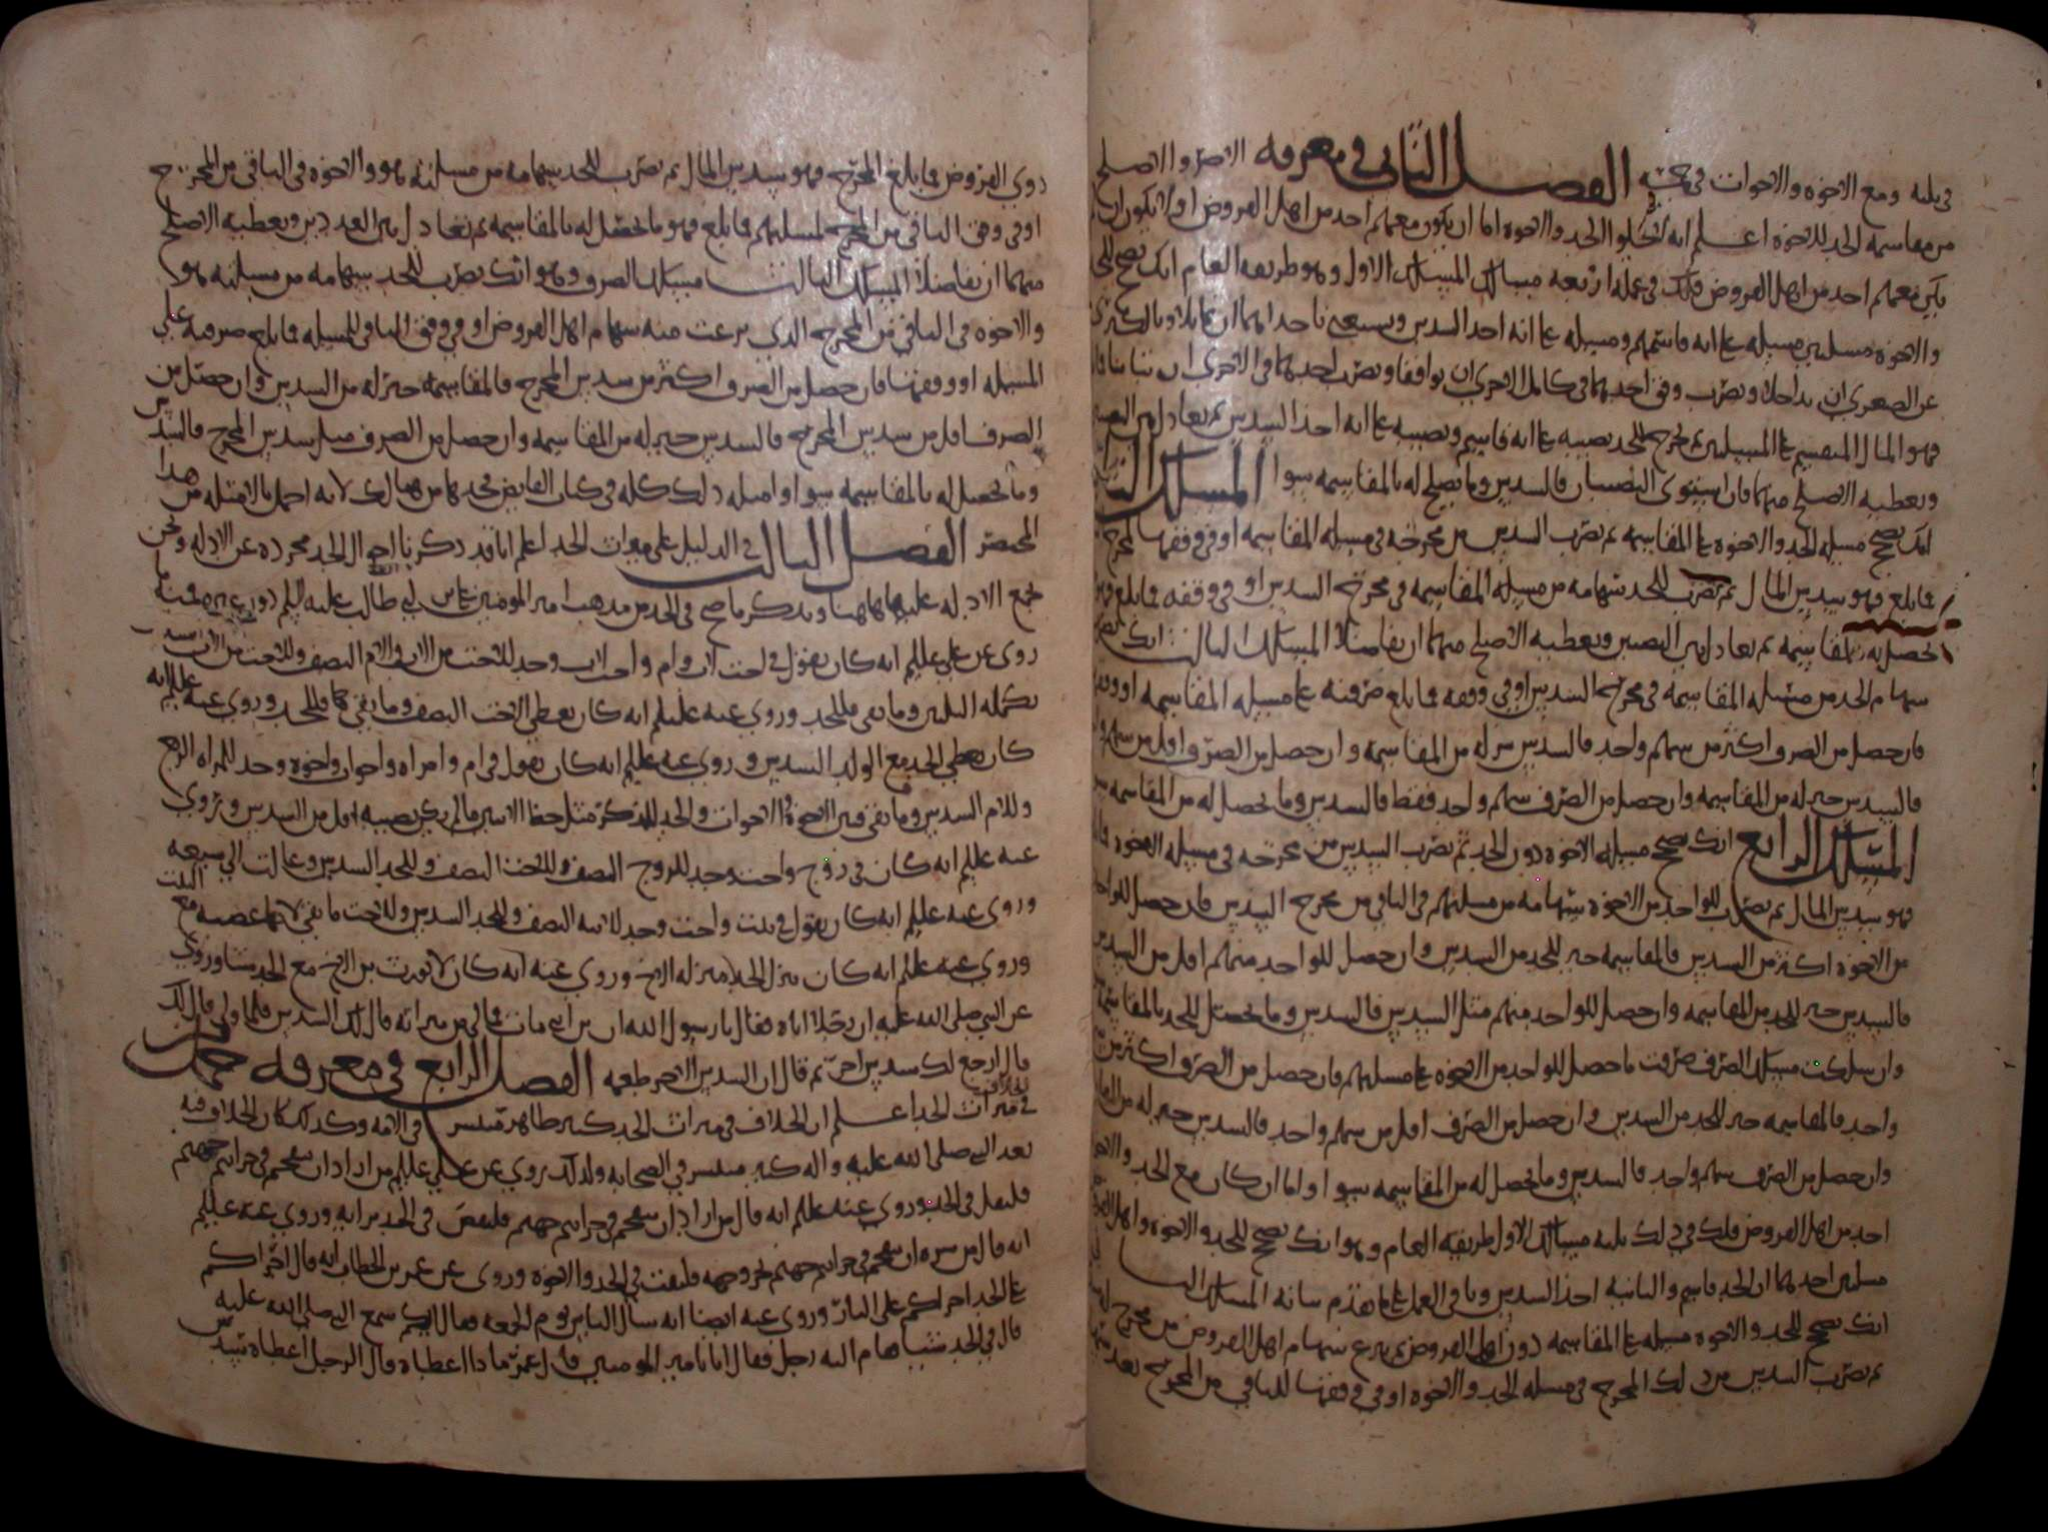 في بابه ومع الاخوه والاخوات في الفصل الثاني في معرفه الاضر والاصلح
من مقاسمه الجد للاخوه اعلم انه لا يخلوا الجد والاخوه اما ان يكون معهم احد من اهل الفروض او لا يكون ان
يكن معهم احد من اهل الفروض فلك في عمله اربعه مسالك المسلك الاول وهو طريقه العام انك تصحح للجد
والاخوه مسلتين مسله على انه قاسمهم ومسله على انه اخذ السدس وتستغني باحداهما ان تماثلا وبالكبرى
عن الصغرى ان تداخلا وتضرب وفق احديهما في كامل الاخرى ان توافقا وتضرب احديهما في الاخرى ان تباينا فما
فهو المال المنقسم على المسلتين ثم تخرج للجد نصيبه على انه قاسم ونصيبه على انه اخذ السدس ثم تعادل بين
وتعطيه الاصلح منهما فان استوى النصيبان فالسدس وما يصلح له بالمقاسمه سوا المسلك الثاني
انك تصحح مسله الجد والاخوه على المقاسمه ثم تضرب السدس من مخرجه في مسله المقاسمه او في وفقها
فما بلغ فهو سدس المال ثم تضرب للجد سهامه من مسله المقاسمه في مخرج السدس او في وفقه فما بلغ فهو
يحصل له بالمقاسمه ثم تعادل بين النصيبين وتعطيه الاصلح منهما ان تفاضلا المسلك الثالث انك تضرب
سهام الجد من مسله المقاسمه في مخرج السدس او في وفقه فما بلغ صرفته على مسله المقاسمه او وفقها
فان حصل من الصرف اكثر من سهم واحد فالسدس شر له من المقاسمه وان حصل من الصرف اقل من سهم
فالسدس خير له من المقاسمه وان حصل من الصرف سهم واحد فقط فالسدس وما يحصل له من المقاسمه
المسلك الرابع انك تصحح مسله الاخوه دون الجد ثم تضرب السدس من مخرجه في مسله الاخوه
فهو سدس المال ثم تضرب للواحد من الاخوه سهامه من مسلتهم في الباقي من مخرج السدس فان حصل للواحد
من الاخوه اكثر من السدس فالمقاسمه خير للجد من السدس وان حصل للواحد منهم اقل من السدس
فالسدس خير للجد من المقاسمه وان حصل للواحد منهم مثل السدس فالسدس وما يحصل للجد بالمقاسمه
وان سلكت مسلك الصرف صرفت ما حصل للواحد من الاخوه على مسلتهم فان حصل من الصرف اكثر من
واحد فالمقاسمه خير للجد من السدس وان حصل من الصرف اقل من سهم واحد فالسدس خير له من
وان حصل من الصرف سهم واحد فالسدس وما يحصل له من المقاسمه سوا واما ان كان مع الجد والاخوه
احد من اهل الفروض فلك في ذلك ثلثه مسالك الاول طريقه العام وهو انك تصحح للجد والاخوه واهل
مسلتين احديهما ان الجد قاسم والثانيه اخذ السدس وباقي العمل على ما تقدم بيانه المسلك الثاني
انك تصحح للجد والاخوه مسله على المقاسمه دون اهل الفروض ثم تنزع سهام اهل الفروض من مخرج
ثم تضرب السدس من ذلك المخرج في مسله الجد والاخوه او في وفقها للباقي من المخرج بعد
ذوي الفروض فما بلغ المخرج فهو سدس المال ثم تضرب للجد سهامه من مسلته هو والاخوه في الباقي من المخرج
او في وفق الباقي من المخرج لمسلتهم فما بلغ فهو ما يحصل له بالمقاسمه ثم تعادل بين العددين وتعطيه الاصلح
منهما ان تفاضلا المسلك الثالث مسلك الصرف وهو انك تضرب للجد سهامه من مسلته هو
والاخوه في الباقي من المخرج الذي نزعت منه سهام اهل الفروض او في وفق الباقي للمسله فما بلغ صرفته على
المسله او وفقها فان حصل من الصرف اكثر من سدس المخرج فالمقاسمه خير له من السدس وان حصل من
الصرف اقل من سدس المخرج فالسدس خير له من المقاسمه وان حصل من الصرف مثل سدس المخرج فالسدس
وما يحصل له بالمقاسمه سوا وامثله ذلك كله في كتاب الفايض فخذها من هنالك لانه احمل بالامثله من هذا
المختصر الفصل الثالث في الدليل على ميراث الجد اعلم انا قد ذكرنا احوال الجد مجرده عن الادله ونحن
نجمع الادله عليها هاهنا ونذكر ما صح في الجد من مذهب امير المومنين علي بن ابي طالب عليه السلم
روي عن علي عليلم انه كان يقول في اخت لاب وام واخت لاب وجد للاخت من الاب والام النصف وللاخت من الاب السدس
تكمله الثلثين وما بقي فللجد وروي عنه عليلم انه كان يعطي الاخت النصف وما بقي فللجد وروي عنه عليلم انه
كان يعطي الجد مع الولد السدس وروي عنه عليلم انه كان يقول في ام وامراه واخوات واخوه وجد للمراه الربع
وللام السدس وما بقي فبين الاخوه والاخوات والجد للذكر مثل حظ الانثيين ما لم يكن نصيبه اقل من السدس وتروي
عنه عليلم انه كان في زوج واخت وجد للزوج النصف وللاخت النصف وللجد السدس وعالت الى سبعه
وروي عنه عليلم انه كان يقول في بنت واخت وجد للابنه النصف وللجد السدس وللاخت ما بقي لانها عصبه مع البنت
وروي عنه عليلم انه كان ينزل الجد منزله الاخ وروي عنه انه كان لا يورث بن الاخ مع الجد شيا وروي
عن النبي صلى الله عليه ان رجلا اتاه فقال يا رسول الله ان بن ابني مات فما لي من ميراثه قال لك السدس فلما ولى قال لك
قال ارجع لك سدس اخر ثم قال ان السدس الاخر طعمه الفصل الرابع في معرفه حكم
الخلاف
في ميراث الجد اعلم ان الخلاف في ميراث الجد كثير ظاهر منتشر في الامه وكذلك كان الخلاف فيه
بعد النبي صلى الله عليه واله كثير منتشر في الصحابه ولذلك روي عن علي عليلم من اراد ان يتقحم في جراثيم جهنم
فليقل في الجد وروي عنه عليلم انه قال من اراد ان يتقحم في جراثيم جهنم فليقض في الجد برايه وروي عنه عليلم
انه قال من سره ان يتقحم في جراثيم جهنم بحر وجهه فليفت في الجد والاخوه وروي عن عمر بن الخطاب انه قال اجراكم
على الجد اجراكم على النار وروي عنه ايضا انه سال الناس يوم الجمعه فقال ايكم سمع النبي صلى الله عليه
قال في الجد شيا فقام اليه رجل فقال انا يا امير المومنين قال عمر ماذا اعطاه قال الرجل اعطاه سدس